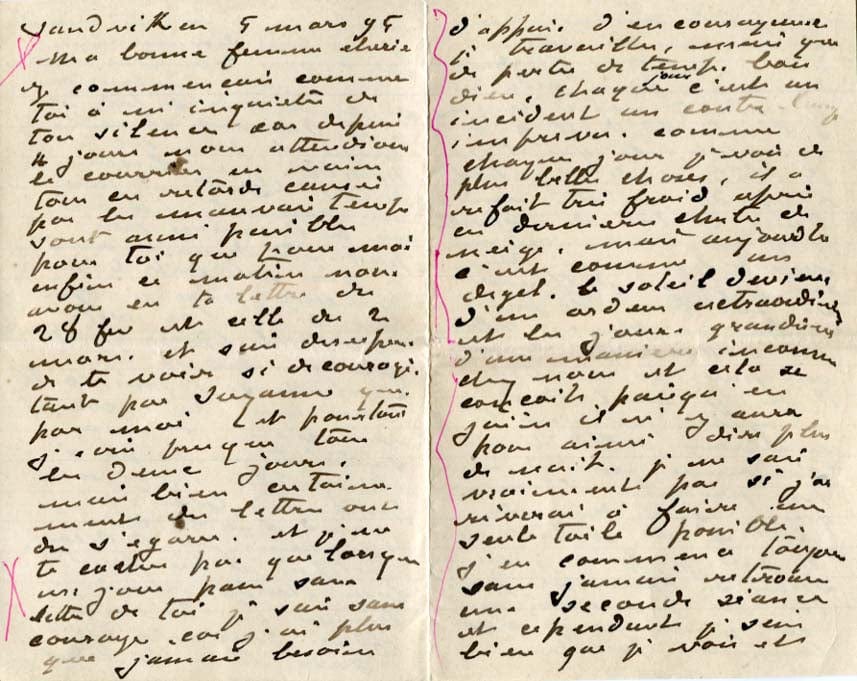 Sandviken 5 mars 95
Ma bonne femme cherie
je commencais comme
toi à m inquieter de
ton silence car depuis
4 jours nous attendions
le courrier en vain
tous ces retards causés
par les mauvais temps
sont aussi penibles
pour toi que pour moi
enfin ce matin nous
avons eu ta lettre du
28 fev et celle du 2
mars. et suis desesperé
de te voir si decouragé.
tant par Suzanne que
par moi et pourtant
j'ecris presque tous
les deux jours.
mais bien certaine-
ment des lettres ont
du s'egarer. et je ne
te cache pas que lorsque
un jour passe sans
lettre de toi je suis sans
courage. car j'ai plus
que jamais besoin
d'appui. d'encouragement
je travaille, mais que
de perte de temps. bon
dieu, chaque jour c'est un
incident un contre temps
imprevu. comme
chaque jour je vois de
plus belles choses, il a
refait tres froid apres
ces dernieres chutes de
neige. mais aujourd'hui
c'est comme un
degel. le soleil devient
d'une ardeur extraordinaire
et les jours grandissent
d'une maniere inconnue
chez nous et cela se
conçoit puisqu'en
juin il n'y aura
pour ainsi dire plus
de nuit. je ne sais
vraiment pas si j'ar
riverai à faire une
seule toile possible.
j'en commence toujours
sans jamais retrouver
une seconde séance
et cependant je sens
bien que je vois et